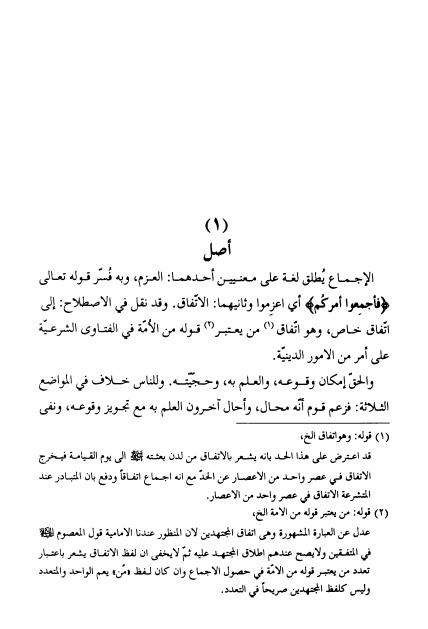 (١)
أصل
الإجـمـاع يُطلق لغة على معنيين أحدهما: العزم، وبه فُسّر قوله تعالى
﴿فأجمِعوا أمركُم﴾ أي اعزِموا وثانيهما: الاتّفاق. وقد نقل في الاصطلاح: إلى
اتّفاق خـاص، وهو اتّفاق (١) من يـعتبـر (٢) قوله من الأمّة في الفتاوى الشرعيّة
على أمر من الامور الدينيّة.
والحقّ إمكان وقـوعـه، والعلم به، وحـجـيّتـه. وللناس خـلاف في المواضع
الثـلاثة: فزعم قـوم أنّه محـال، وأحال آخـرون العلم به مع تجويز وقوعـه، ونفى
(١) قوله: وهواتفاق الخ،
قد اعترض على هذا الحد بانه يشـعر بالاتفـاق من لدن بعثته ﷺ الى يوم القيـامة فيـخرج
الاتفاق في عصر واحـد من الاعصار عن الحدّ مع انه اجماع اتفـاقـاً ودفع بان المتبادر عند
المتشرعة الاتفاق في عصر واحد من الاعصار.
(٢) قوله: من يعتبر قوله من الامة الخ،
عدل عن العبارة المشهورة وهى اتفاق المجتهدين لان المنظور عندنا الامامية قول المعصوم
في المتفـقين ولايصح عندهم اطلاق المجتـهد عليه ثمّ لايخفى ان لفظ الاتفـاق يشعر باعتبار
تعدد من يعتبـر قوله من الامّة في حصول الاجماع وان كان لـفظ «مَن» يعم الواحد والمتعدد
وليس كلفظ المجتهدين صريحاً في التعدد.